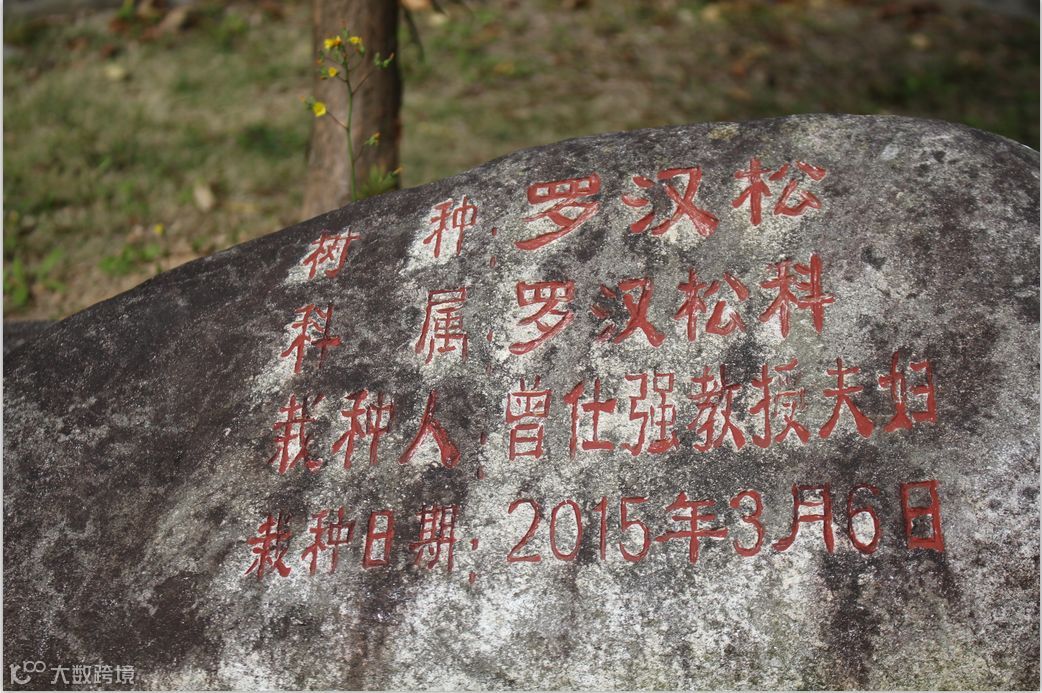 树种:罗汉松
科属:罗汉松科
栽种人:曾仕强教授夫妇
栽种日期:2015年3月6日
大数跨境